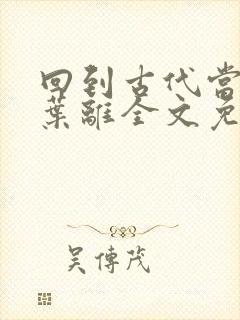 回到古代当
葉離全文免
吴傳茂